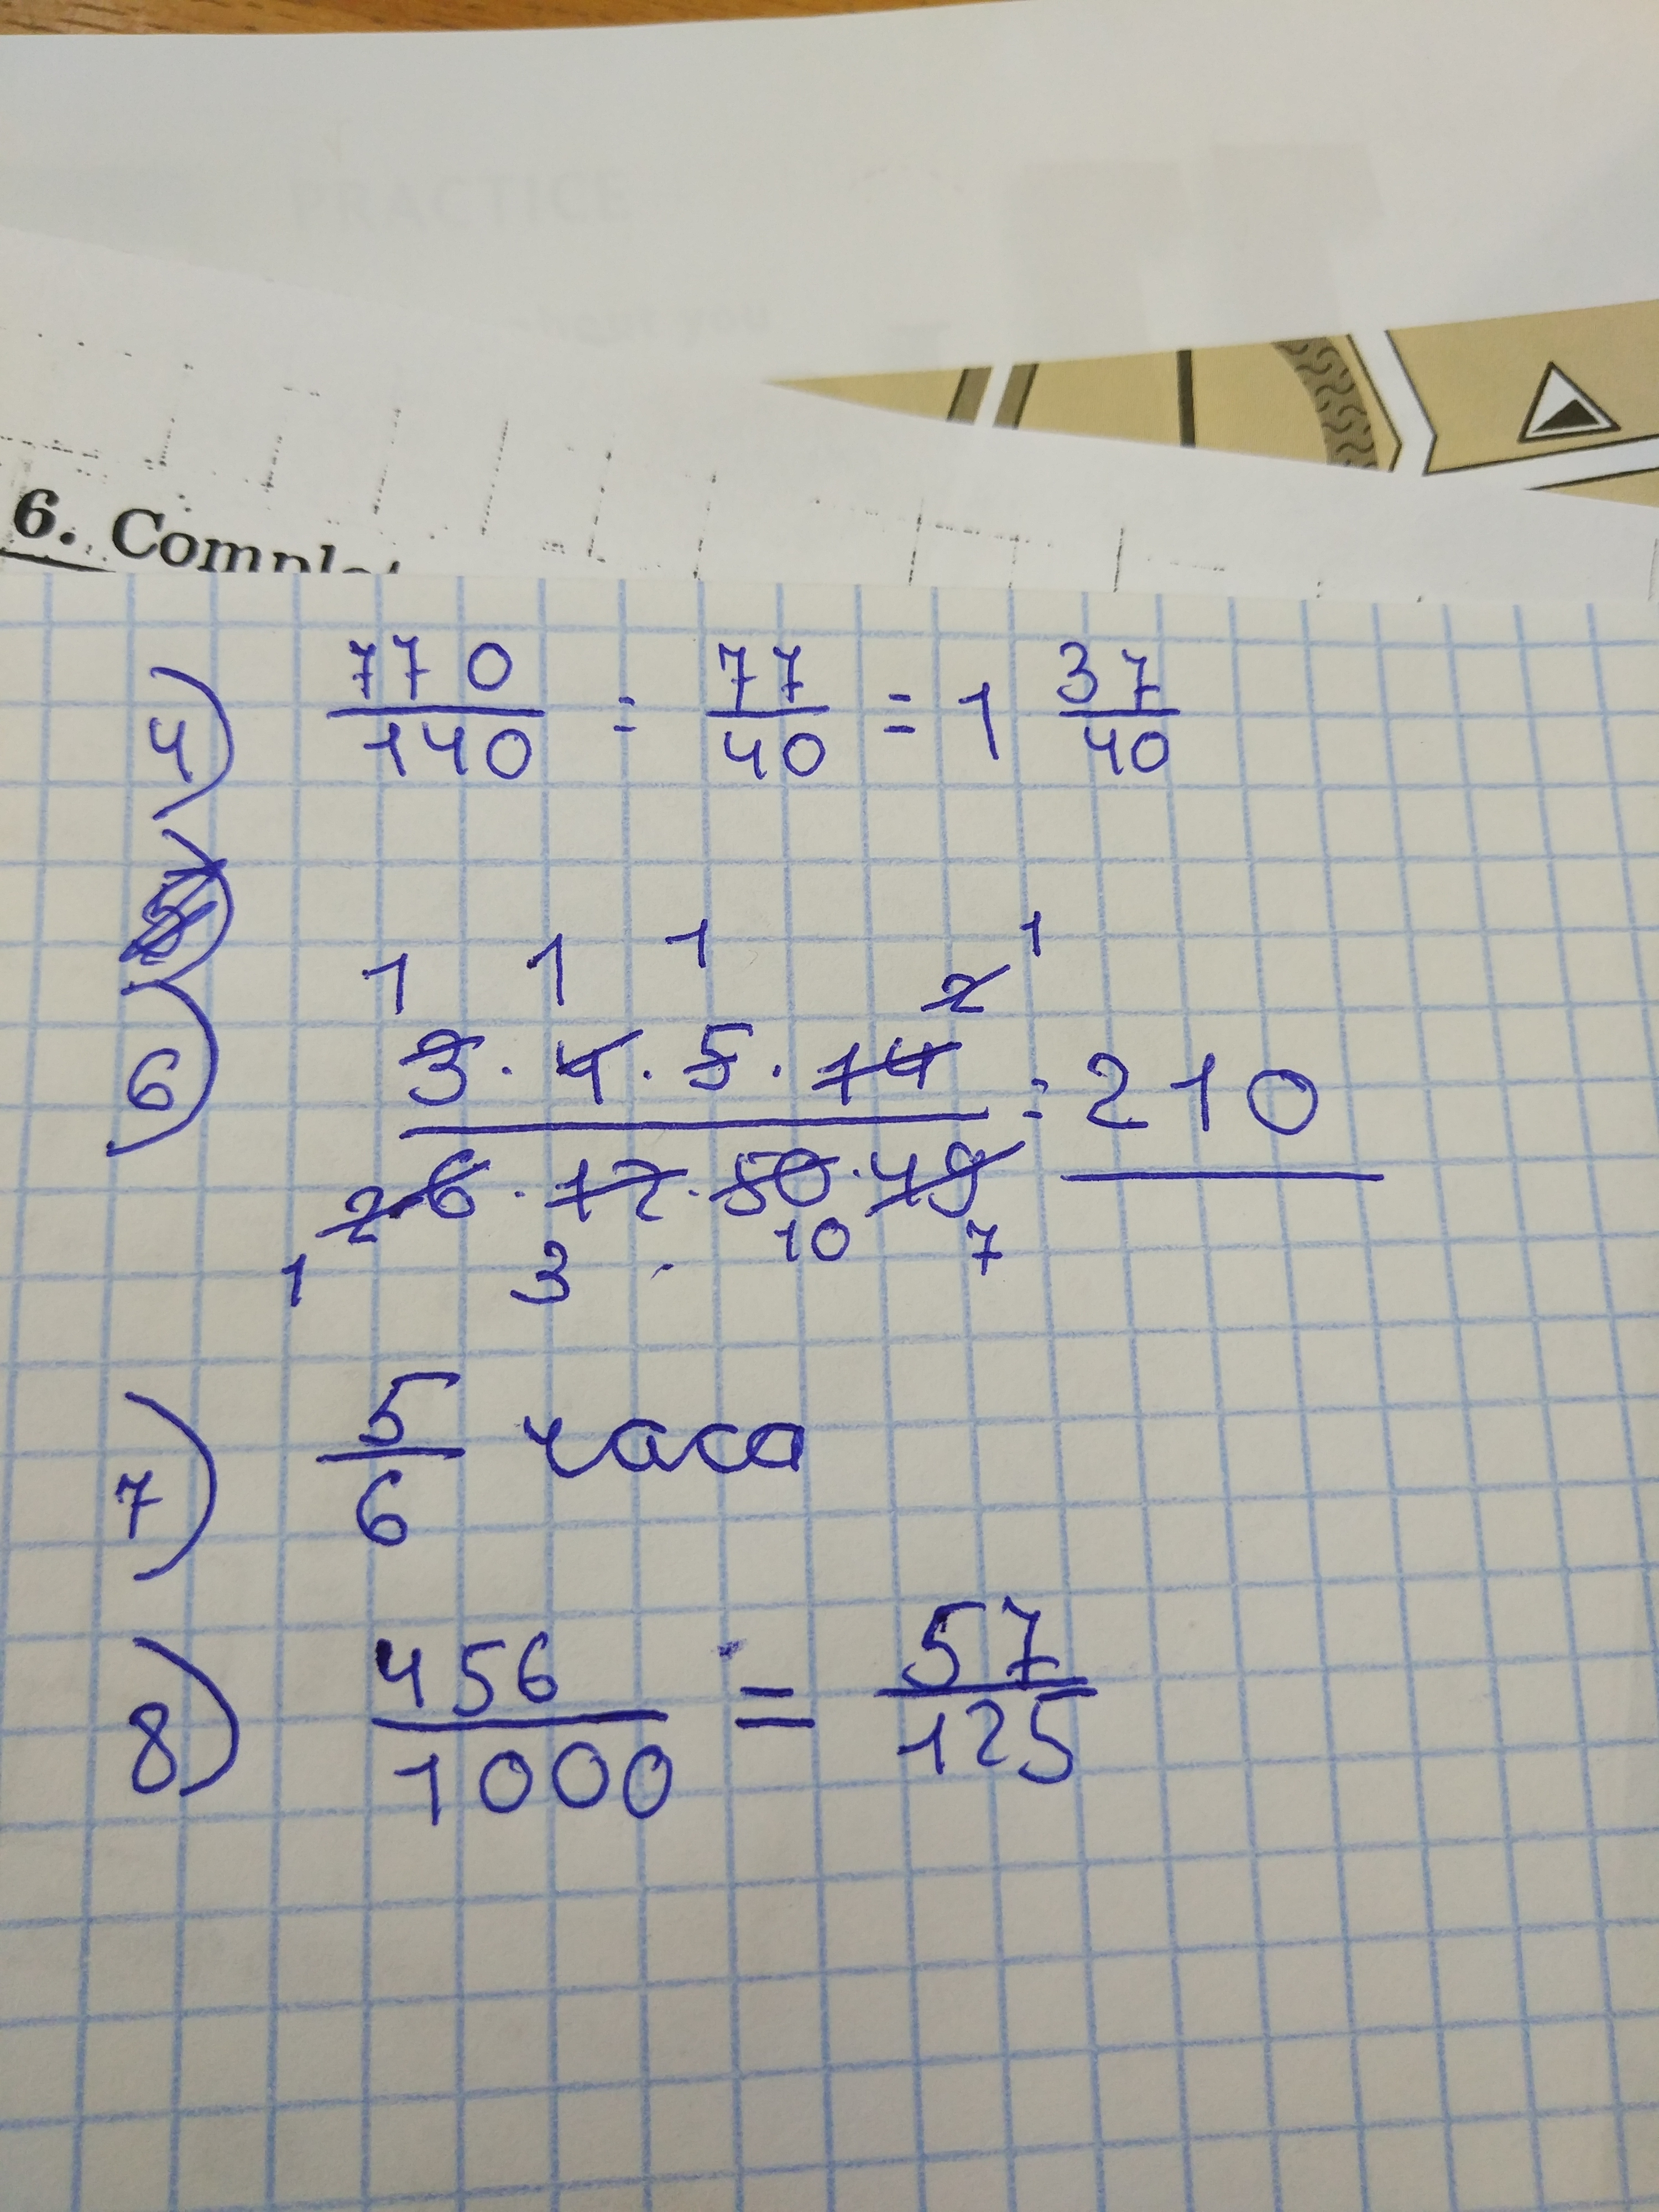 PRACTICE
about you
6. Complet
4) 770/140 = 77/40 = 1 37/40
5)
6) 3 · 4 · 5 · 14 / 6 · 12 · 50 · 49 = 210
1 1 1 2 1
2 1 3 10 7
7) 5/6 часа
8) 456/1000 = 57/125